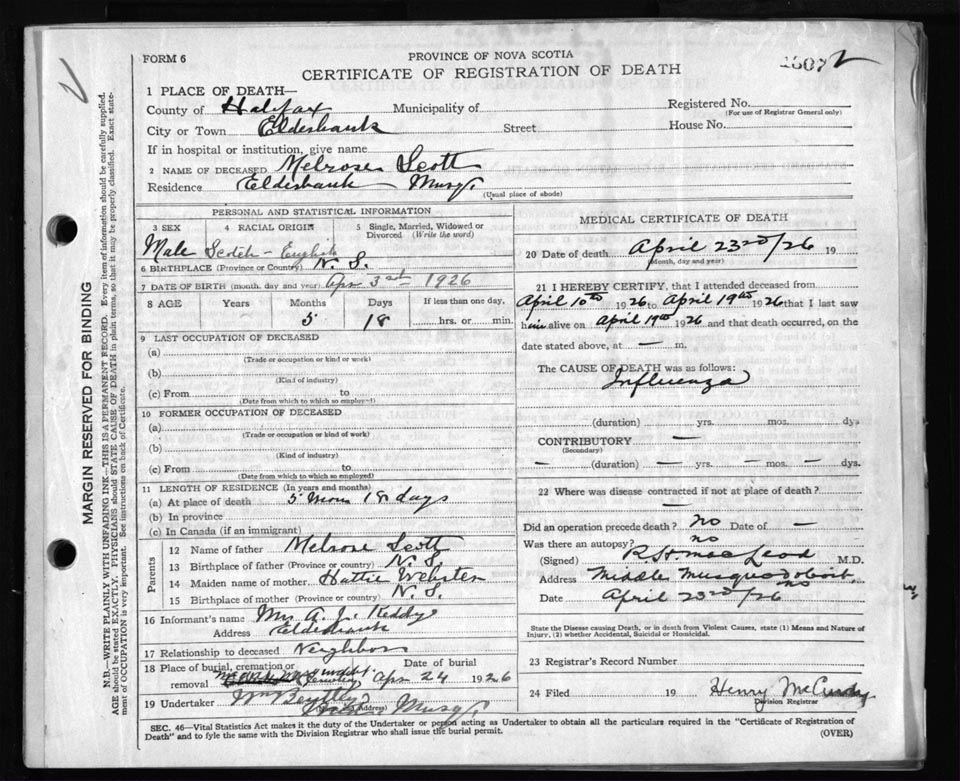 FORM 6
PROVINCE OF NOVA SCOTIA
CERTIFICATE OF REGISTRATION OF DEATH
1 PLACE OF DEATH—
County of Halifax Municipality of Registered No.
(For use of Registrar General only)
City or Town Eldersbank Street House No.
If in hospital or institution, give name
2 NAME OF DECEASED Melrose Scott
Residence Eldersbank Musqt.
(Usual place of abode)
PERSONAL AND STATISTICAL INFORMATION
3 SEX 4 RACIAL ORIGIN 5 Single, Married, Widowed or Divorced (Write the word)
Male Scotch - English
6 BIRTHPLACE (Province or Country) N. S.
7 DATE OF BIRTH (month, day and year) 3rd 1926
8 AGE Years Months Days If less than one day,
5 18 hrs. or min.
9 LAST OCCUPATION OF DECEASED
(a)
(Trade or occupation or kind of work)
(b)
(Kind of industry)
(c) From to
(Date from which to which so employed)
10 FORMER OCCUPATION OF DECEASED
(a)
(Trade or occupation or kind of work)
(b)
(Kind of industry)
(c) From to
(Date from which to which so employed)
11 LENGTH OF RESIDENCE (In years and months)
(a) At place of death 5 mons 18 days
(b) In province
(c) In Canada (if an immigrant)
Parents
12 Name of father Melrose Scott
13 Birthplace of father (Province or country) N. S.
14 Maiden name of mother Hattie Webster
15 Birthplace of mother (Province or country) N. S.
16 Informant's name Mrs A. J. Reddy
Address Eldersbank
17 Relationship to deceased Neighbor
18 Place of burial, cremation or removal Cemetery Date of burial Apr 24 1926
19 Undertaker Wm Bentley Musqt.
(Address)
MEDICAL CERTIFICATE OF DEATH
20 Date of death April 23rd/26 19
(Month, day and year)
21 I HEREBY CERTIFY, that I attended deceased from
April 10th 1926 to April 19th 1926 that I last saw
him alive on April 19th 1926 and that death occurred, on the
date stated above, at — m.
The CAUSE OF DEATH was as follows:
Influenza
(duration) yrs. mos. dys
CONTRIBUTORY —
(Secondary)
— (duration) — yrs. — mos. — dys.
22 Where was disease contracted if not at place of death?
—
Did an operation precede death? no Date of —
Was there an autopsy? no
(Signed) R. H. MacLeod M.D.
Address Middle Musquodoboit
Date April 23rd/26
State the Disease causing Death, or in death from Violent Causes, state (1) Means and Nature of
Injury, (2) whether Accidental, Suicidal or Homicidal.
23 Registrar's Record Number
24 Filed 19 Henry McCurdy
Division Registrar
SEC. 46—Vital Statistics Act makes it the duty of the Undertaker or person acting as Undertaker to obtain all the particulars required in the "Certificate of Registration of
Death" and to fyle the same with the Division Registrar who shall issue the burial permit.
(OVER)
MARGIN RESERVED FOR BINDING
N.B.—WRITE PLAINLY WITH UNFADING INK—THIS IS A PERMANENT RECORD. Every item of information should be carefully supplied.
AGE should be stated EXACTLY. PHYSICIANS should STATE CAUSE OF DEATH in plain terms, so that it may be properly classified. Exact state-
ment of OCCUPATION is very important. See instructions on back of Certificate.